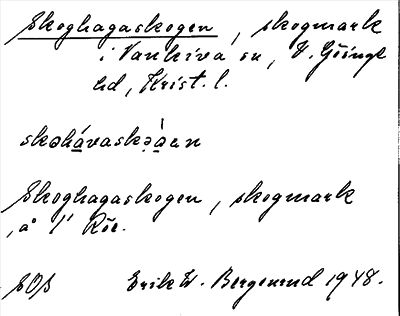 Skoghagaskogen, skogmark
i Vankiva sn, V. Göinge
hd, Krist. l.
Skoghagaskogen, skogmark
, å 1/1 Röe.
SOS Erik W. Bergenrud 1948.